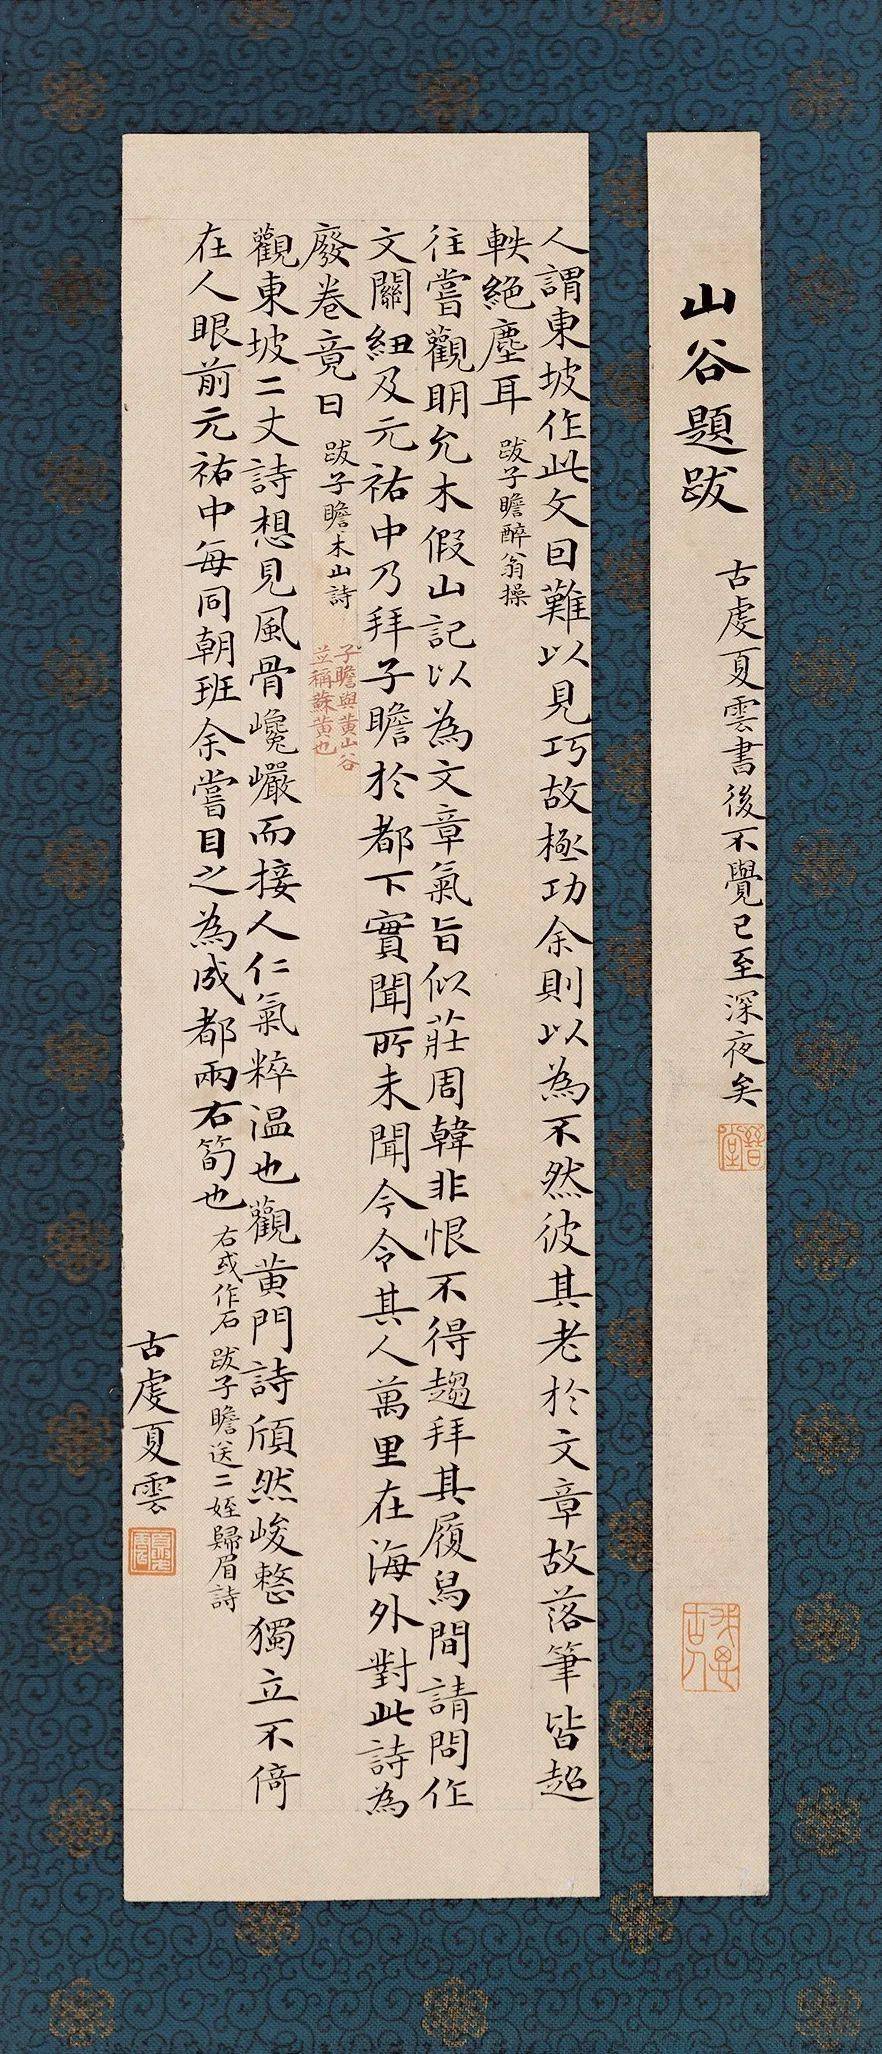 山谷題跋
古虔夏雲書後不覺已至深夜矣
人謂東坡作此文回難以見巧故極功余則以為不然彼其老於文章故落筆皆超
軼絕塵耳 跋子瞻醉翁操
往嘗觀明允木假山記以為文章氣旨似莊周韓非恨不得趨拜其履舃間請問作
文關紐及元祐中乃拜子瞻於都下實聞所未聞今令其人萬里在海外對此詩為
廢卷竟日 跋子瞻木山詩
子瞻與黃山谷
並稱蘇黃也
觀東坡二丈詩想見風骨巉巖而接人仁氣粹温也觀黄門詩頎然峻整獨立不倚
在人眼前元祐中每同朝班余嘗目之為成都兩右筍也 右或作石 跋子瞻送二姪歸眉詩
古虔夏雲